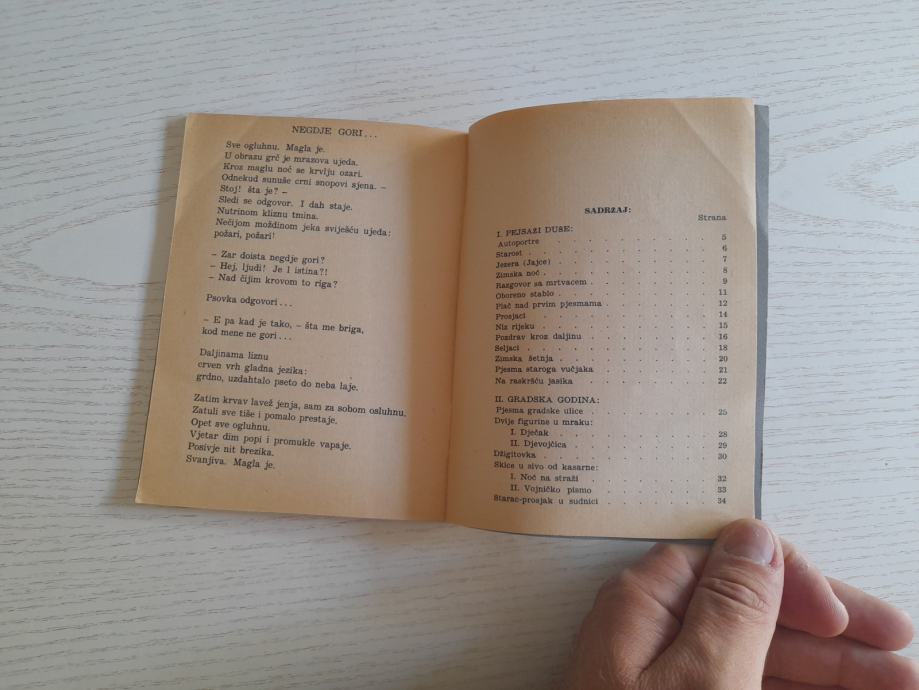 NEGDJE GORI...
Sve ogluhnu. Magla je.
U obrazu grč je mrazova ujeda.
Kroz maglu noć se krvlju ozari.
Odnekud sunuše crni snopovi sjena. –
Stoj! šta je? –
Sledi se odgovor. I dah staje.
Nutrinom kliznu tmina.
Nečijom moždinom jeka sviješću ujeda:
požari, požari!
– Zar doista negdje gori?
– Hej, ljudi! Je l istina?!
– Nad čijim krovom to riga?
Psovka odgovori...
– E pa kad je tako, – šta me briga,
kod mene ne gori...
Daljinama liznu
crven vrh gladna jezika:
grdno, uzdahtalo pseto do neba laje.
Zatim krvav lavež jenja, sam za sobom osluhnu.
Zatuli sve tiše i pomalo prestaje.
Opet sve ogluhnu.
Vjetar dim popi i promukle vapaje.
Posivje nit brezika.
Svanjiva. Magla je.
SADRŽAJ:
Strana
I. PEJSAŽI DUŠE:
Autoportre . . . . . . . . 5
Starost . . . . . . . . 6
Jezera (Jajce) . . . . . . . . 7
Zimska noć . . . . . . . . 8
Razgovor sa mrtvacem . . . . . . . . 9
Oboreno stablo . . . . . . . . 11
Plač nad prvim pjesmama . . . . . . . . 12
Prosjaci . . . . . . . . 14
Niz rijeku . . . . . . . . 15
Pozdrav kroz daljinu . . . . . . . . 16
Seljaci . . . . . . . . 18
Zimska šetnja . . . . . . . . 20
Pjesma staroga vučjaka . . . . . . . . 21
Na raskršću jasika . . . . . . . . 22
II. GRADSKA GODINA:
Pjesma gradske ulice . . . . . . . . 25
Dvije figurine u mraku:
I. Dječak . . . . . . . . 28
II. Djevojčica . . . . . . . . 29
Džigitovka . . . . . . . . 30
Skice u sivo od kasarne:
I. Noć na straži . . . . . . . . 32
II. Vojničko pismo . . . . . . . . 33
Starac-prosjak u sudnici . . . . . . . . 34